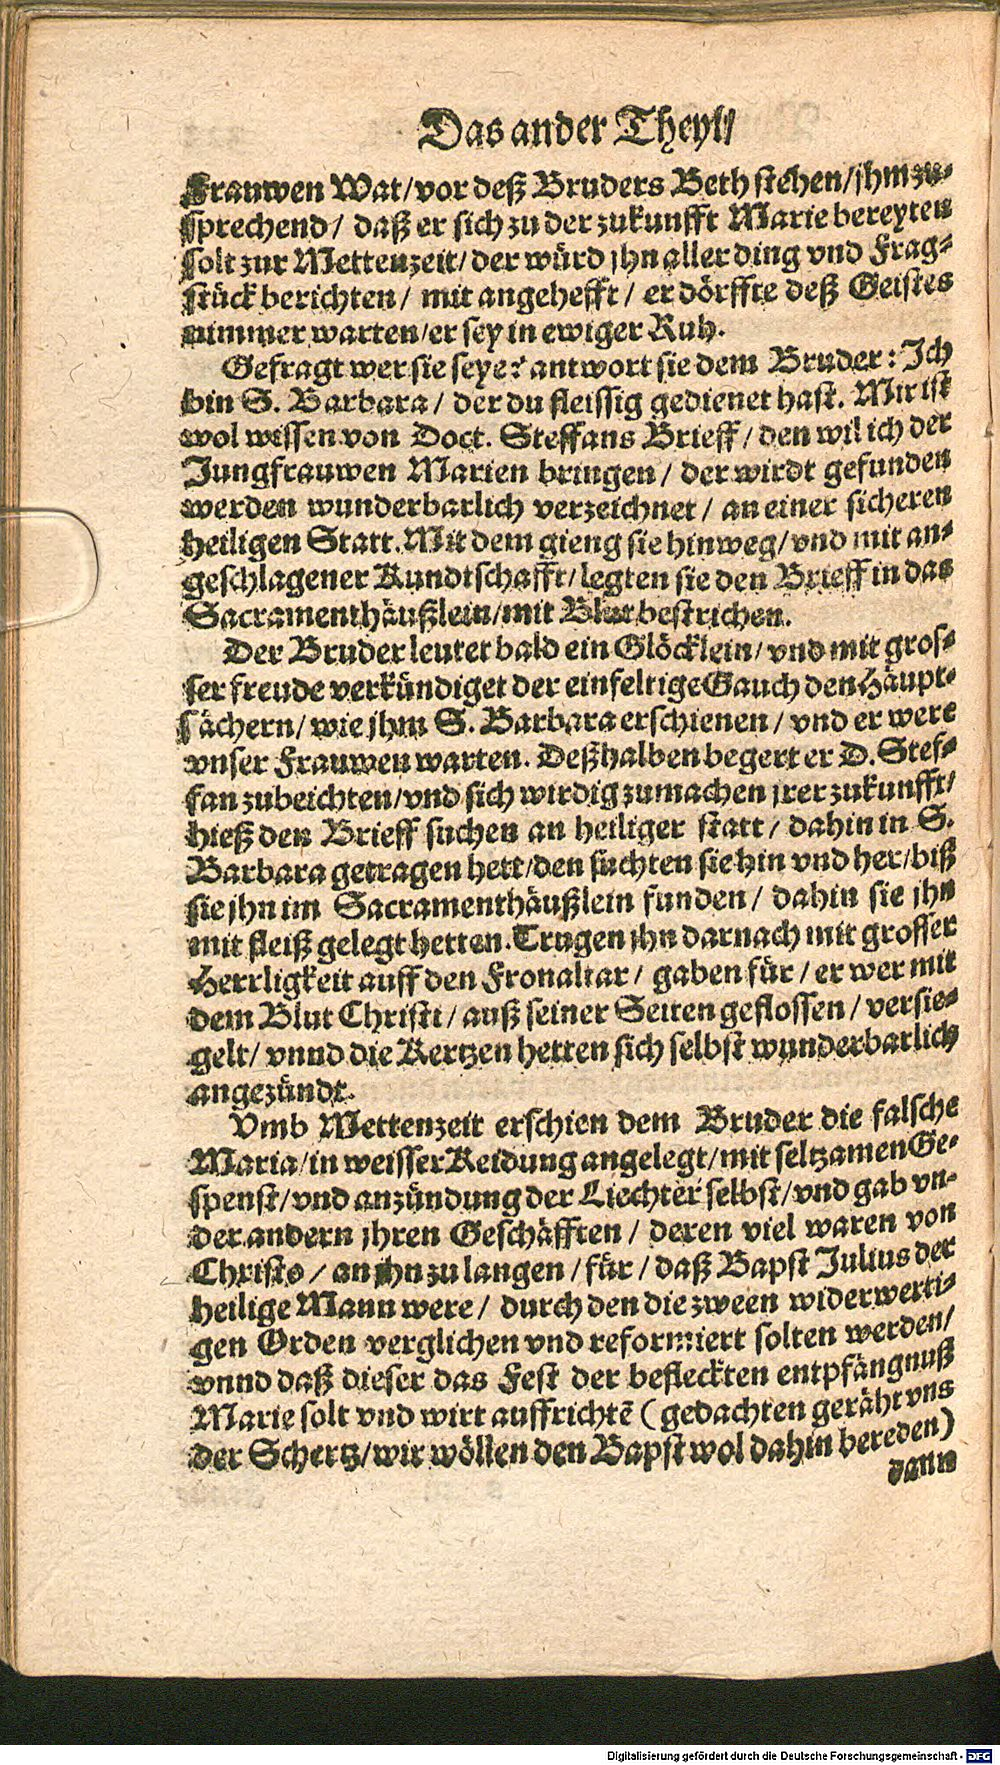 Das ander Theyl/
Frauwen Wat/vor deß Bruders Beth stehen/jhm zu-
sprechend/ daß er sich zu der zukunfft Marie bereyten
solt zur Mettenzeit/ der würd jhn aller ding vnd Frag-
stück berichten/ mit angehefft/ er dörffte deß Geistes
nimmer warten/er sey in ewiger Ruh.
Gefragt wer sie seye? antwort sie dem Bruder: Ich
bin S. Barbara/ der du fleissig gedienet hast. Mir ist
wol wissen von Doct. Steffans Brieff/ den wil ich der
Jungfrauwen Marien bringen/ der wirdt gefunden
werden wunderbarlich verzeichnet/ an einer sicheren
heiligen Statt. Mit dem gieng sie hinweg/vnd mit an-
geschlagener Kundtschafft/legten sie den Brieff in das
Sacramenthäußlein/mit Blut bestrichen.
Der Bruder leutet bald ein Glöcklein/vnd mit gros-
ser freude verkündiget der einfeltige Gauch den Häupt-
sächern/wie jhm S. Barbara erschienen/vnd er were
vnser Frauwen warten. Deßhalben begert er D. Stef-
fan zubeichten/vnd sich wirdig zumachen jrer zukunfft/
hieß den Brieff suchen an heiliger statt/ dahin in S.
Barbara getragen hett/den suchten sie hin vnd her/biß
sie jhn im Sacramenthäußlein funden/ dahin sie jhn
mit fleiß gelegt hetten. Trugen jhn darnach mit grosser
Herrligkeit auff den Fronaltar/ gaben für/ er wer mit
dem Blut Christi/ auß seiner Seiten geflossen/ versie-
gelt/ vnnd die Kertzen hetten sich selbst wunderbarlich
angezündt.
Vmb Mettenzeit erschien dem Bruder die falsche
Maria/in weisser Keidung angelegt/mit seltzamen Ge-
spenst/vnd anzündung der Liechter selbst/vnd gab vn-
der andern jhren Geschäfften/ deren viel waren von
Christo/ an jhn zu langen/für/ daß Bapst Julius der
heilige Mann were/ durch den die zween widerwerti-
gen Orden verglichen vnd reformiert solten werden/
vnnd daß dieser das Fest der befleckten entpfängnuß
Marie solt vnd wirt auffrichtē (gedachten geräht vns
der Schertz/wir wöllen den Bapst wol dahin bereden)
dann
Digitalisierung gefördert durch die Deutsche Forschungsgemeinschaft - DFG